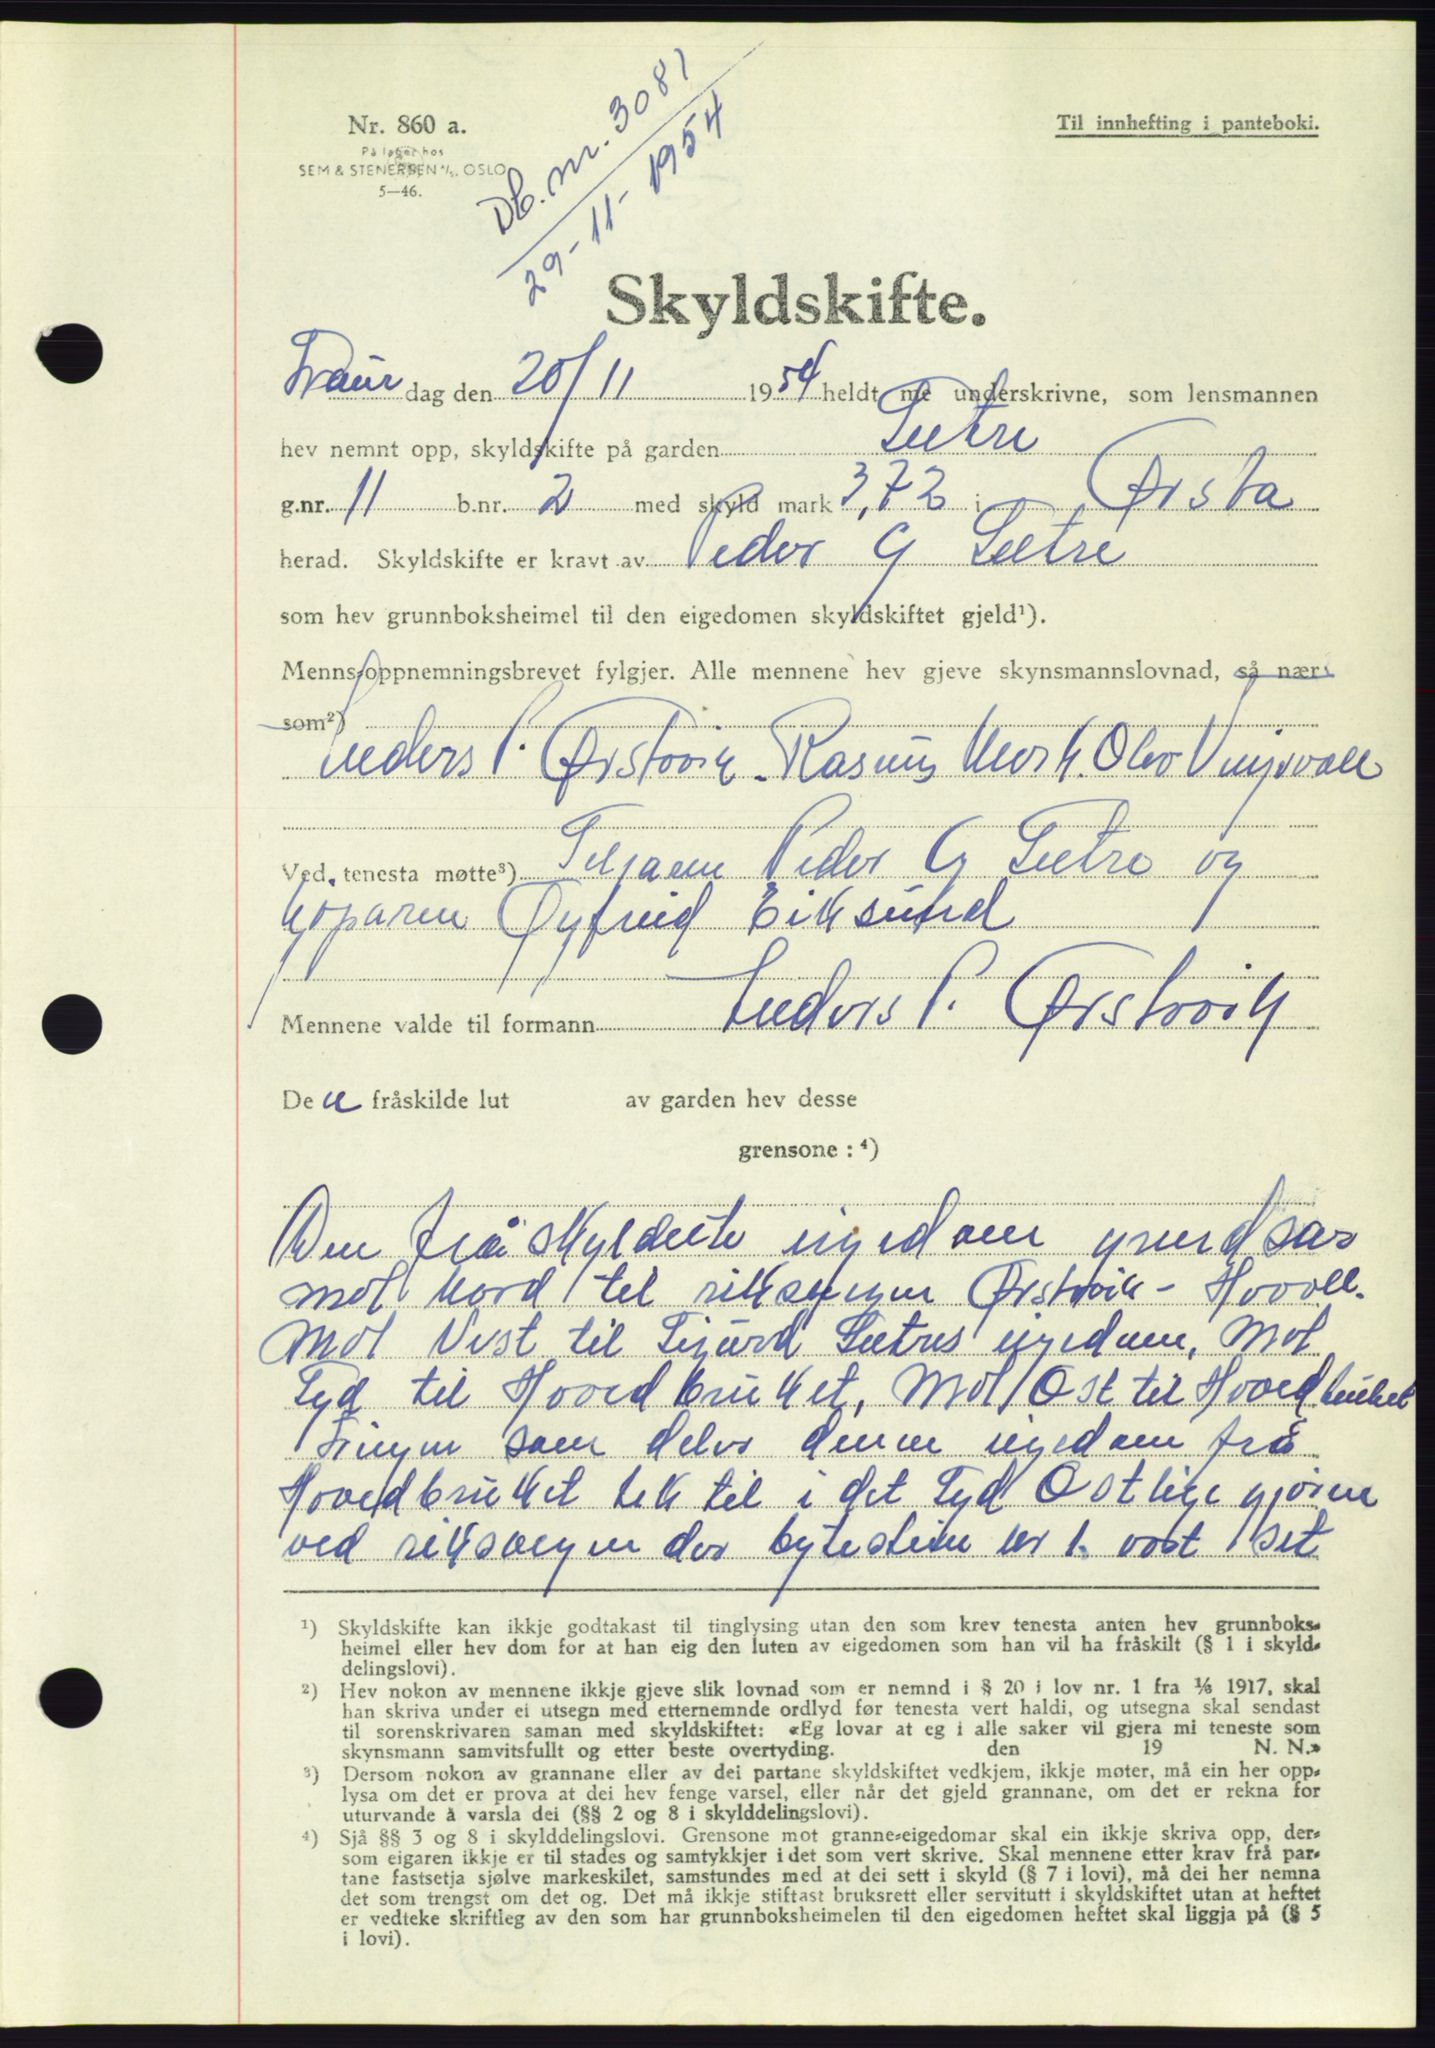 Nr. 860 a.
På lager hos
SEM & STENERSEN A/S, OSLO
5—46.
Db. nr. 3081
29-11-1954
Til innhefting i panteboki.
Skyldskifte.
Laur dag den 20/11 1954 heldt me underskrivne, som lensmannen
hev nemnt opp, skyldskifte på garden Sætre
g.nr. 11 b.nr. 2 med skyld mark 3,72 i Ørsta
herad. Skyldskifte er kravt av Peder G Sætre
som hev grunnboksheimel til den eigedomen skyldskiftet gjeld¹).
Menns-oppnemningsbrevet fylgjer. Alle mennene hev gjeve skynsmannslovnad, så nær
som²)
Anders P. Ørstavik. Rasmus Mork. Olav Vinjevoll
Ved tenesta møtte³) Seljaren Peder G Sætre og
kjøparen Øyfrid Eiksund
Mennene valde til formann Anders P. Ørstavik
Den fråskilde lut av garden hev desse
grensone : ⁴)
Den fråskyldete eigedom grendsar
mot Nord til riksvegen Ørstavik - Hovde.
Mot Vest til Sigurd Sætres eigedom, Mot
Syd til Hovedbruket, Mot Ost til Hovedbruket
Linjen som deler denne eigedom frå
Hovedbruket tek til i det Syd Ostlige hjørne
ved riksvegen der bytestein nr 1. vart set
¹) Skyldskifte kan ikkje godtakast til tinglysing utan den som krev tenesta anten hev grunnboks-
heimel eller hev dom for at han eig den luten av eigedomen som han vil ha fråskilt (§ 1 i skyld-
delingslovi).
²) Hev nokon av mennene ikkje gjeve slik lovnad som er nemnd i § 20 i lov nr. 1 fra 1/6 1917, skal
han skriva under ei utsegn med etternemnde ordlyd før tenesta vert haldi, og utsegna skal sendast
til sorenskrivaren saman med skyldskiftet: «Eg lovar at eg i alle saker vil gjera mi teneste som
skynsmann samvitsfullt og etter beste overtyding. den 19 N. N.»
³) Dersom nokon av grannane eller av dei partane skyldskiftet vedkjem, ikkje møter, må ein her opp-
lysa om det er prova at dei hev fenge varsel, eller når det gjeld grannane, om det er rekna for
uturvande å varsla dei (§§ 2 og 8 i skylddelingslovi).
⁴) Sjå §§ 3 og 8 i skylddelingslovi. Grensone mot granne-eigedomar skal ein ikkje skriva opp, der-
som eigaren ikkje er til stades og samtykkjer i det som vert skrive. Skal mennene etter krav frå par-
tane fastsetja sjølve markeskilet, samstundes med at dei sett i skyld (§ 7 i lovi), må dei her nemna
det som trengst om det og. Det må ikkje stiftast bruksrett eller servitutt i skyldskiftet utan at heftet
er vedteke skriftleg av den som har grunnboksheimelen til den eigedomen heftet skal liggja på (§ 5
i lovi).